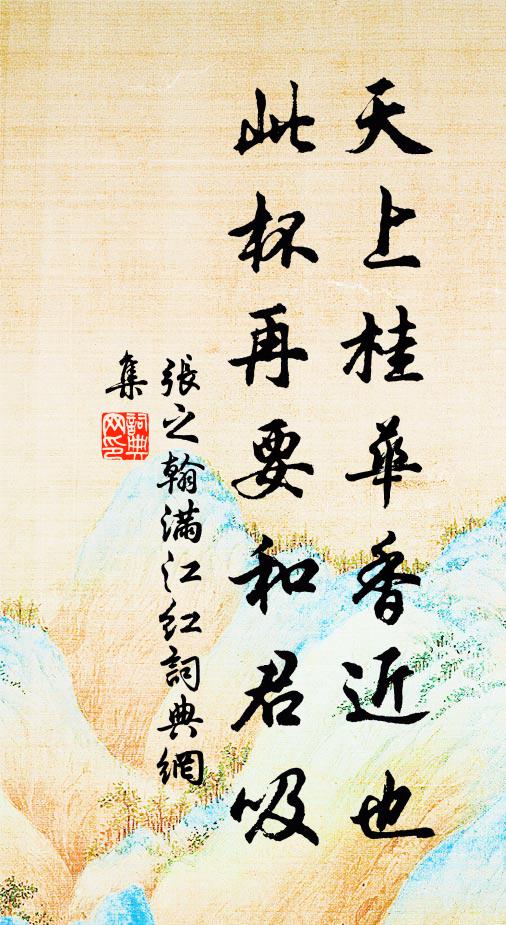 天上桂華香近也
此杯再要和君吸
張之翰滿江紅詞典網
集
詞典網印